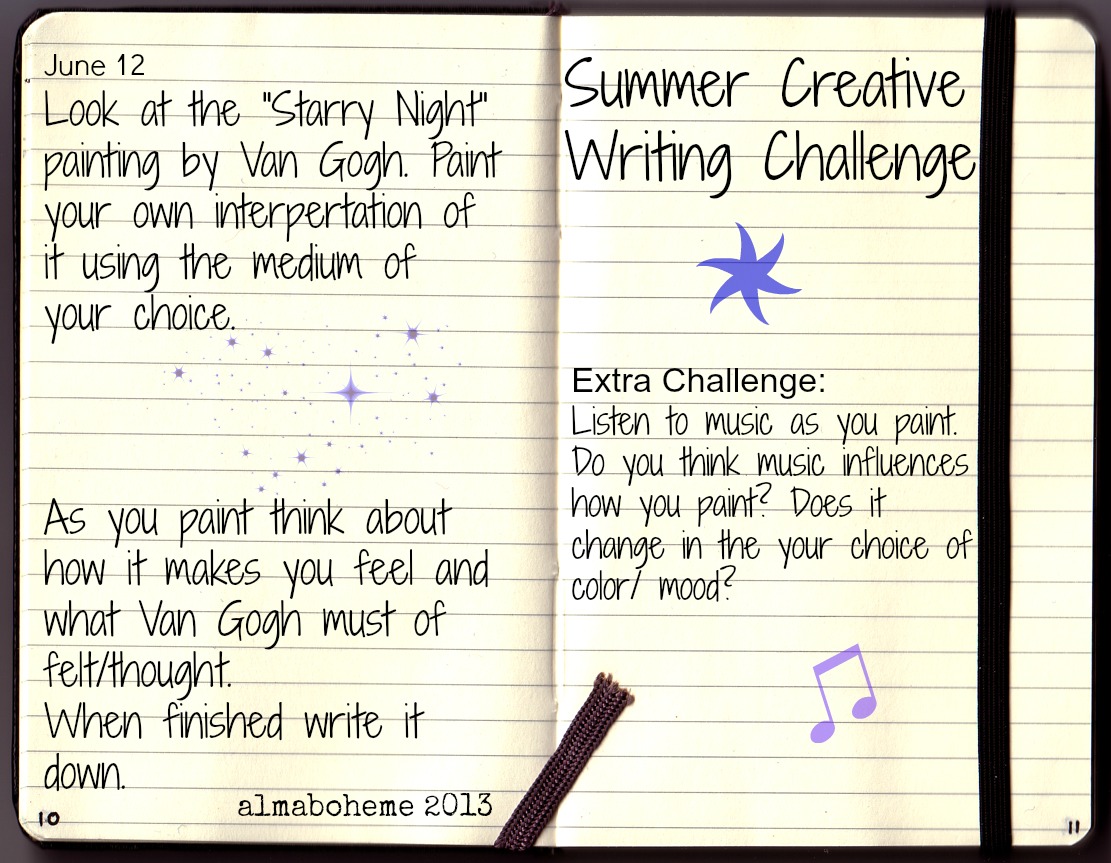 June 12
Look at the "Starry Night"
painting by Van Gogh. Paint
your own interpertation of
it using the medium of
your choice.
As you paint think about
how it makes you feel and
what Van Gogh must of
felt/thought.
When finished write it
down.
almaboheme 2013
10
Summer Creative
Writing Challenge
Extra Challenge:
Listen to music as you paint.
Do you think music influences
how you paint? Does it
change in the your choice of
color/ mood?
11